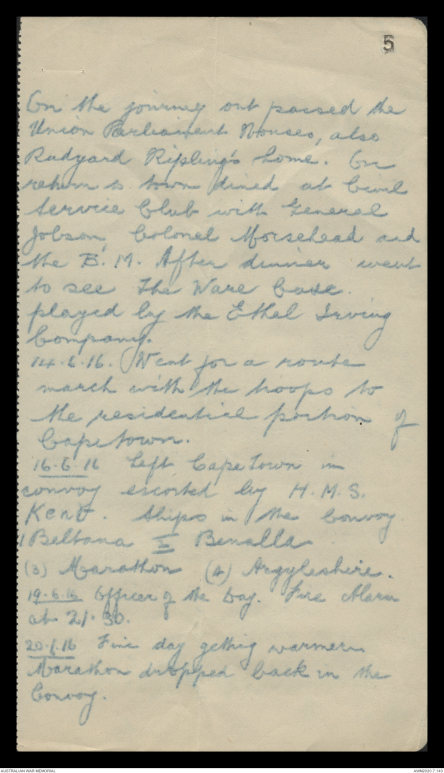 5
On the journey out passed the
Union Parliament Houses, also
Rudyard Kipling's home. On
return to town dined at Civil
Service Club with General
Jobson, Colonel Morsehead and
the B.M. After dinner went
to see The Ware Case
played by the Ethel Irving
Company.
14.6.16. Went for a route
march with the troops to
the residential portion of
Capetown.
16.6.16 Left Cape Town in
convoy escorted by H.M.S.
Kent. Ships in the Convoy
1 Beltana 2 Benalla
(3) Marathon (4) Argyleshire.
19.6.16 Officer of the Day. Fire Alarm
at 21.30.
20.6.16 Fine day getting warmer
Marathon dropped back in the
Convoy.
AUSTRALIAN WAR MEMORIAL